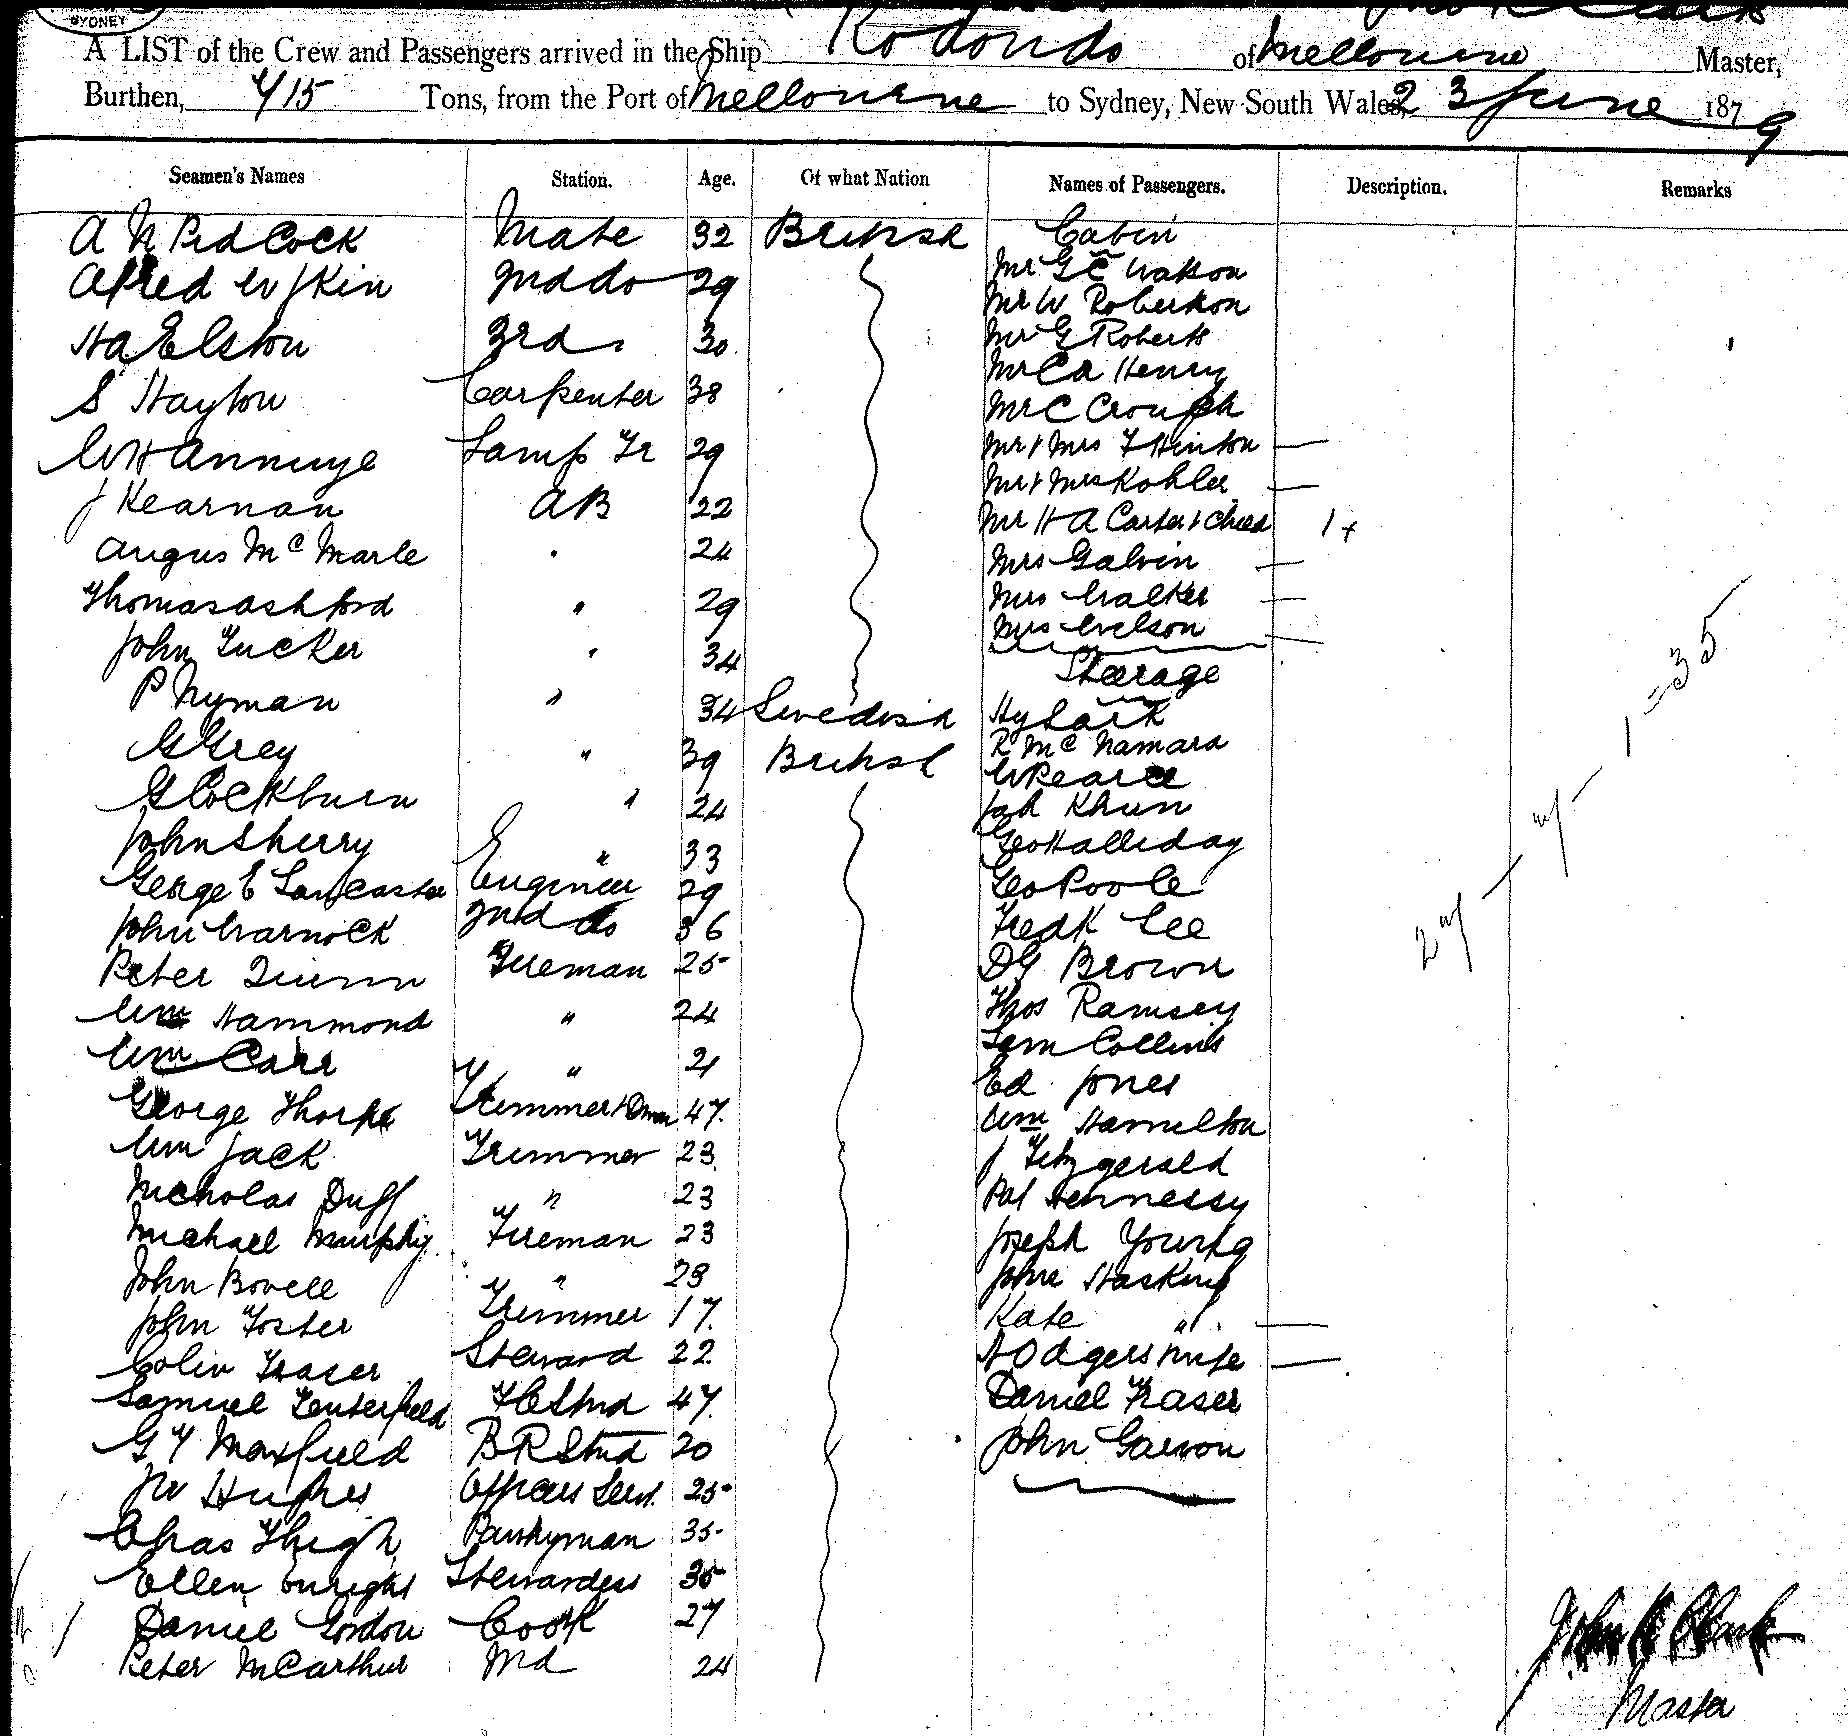 SYDNEY
A LIST of the Crew and Passengers arrived in the Ship Rodondo of Melbourne Master,
Burthen, 715 Tons, from the Port of Melbourne to Sydney, New South Wales, 23 June 1879
Seamen's Names Station. Age. Of what Nation Names of Passengers. Description. Remarks
A N Pidcock Mate 32 British Cabin
Alfred 2nd do 29 Mr G C Watson
Mr W Robertson
Elston 3rd 30 Mr G Roberts
Mr C A Henry
S Hayton Carpenter 38 Mr C Crouch
W H Lamp Tr 29 Mr & Mrs F Hinton —
Mr & Mrs Kohler —
J Kearnan AB 22 Mr H A Carter & Child 1 +
Angus Mc Marle " 24 Mrs Galvin —
Thomas Ashford " 29 Mrs Walker —
Mrs Wilson —
John Tucker " 34 Steerage
P Nyman " 34 Swedish Hy Lark
G Grey " 39 British R Mc Namara
W Pearce
G Cockburn " 24 Khun
John Sherry " 33 Geo Halliday
George E Lancaster Engineer 29 Geo Poole
John Warnock 2nd do 36 Fredk Lee
Peter Quinn Fireman 25 D G Brown
Wm Hammond " 24 Thos Ramsey
Wm Carr " 21 Collins
Ed Jones
George Thorpe Trimmer & 47 Wm Hamilton
Wm Jack Trimmer 23 J Fitzgerald
Nicholas Duff " 23 Pat Hennessy
Michael Murphy Fireman 23 Joseph Young
John Bovell " 28 John Hasking
John Foster Trimmer 17 Kate " —
Colin Fraser Steward 22 Odgers wife —
Samuel Tenterfield Stwd 47 Daniel Fraser
G Y Maxfield B R Stwd 20 John
Hughes Officers Servt. 25
Chas Pantryman 35
Ellen Enright Stewardess 35
Daniel Gordon Cook 27
Peter McArthur 2nd 24
John Clark
Master